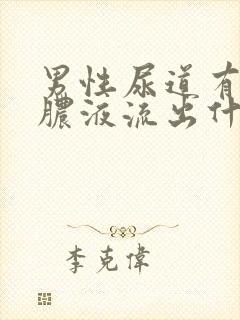 男性尿道有
膿液流出什
李克偉